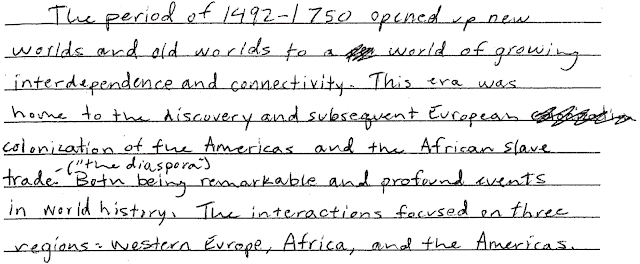 The period of 1492-1750 opened up new
worlds and old worlds to a world of growing
interdependence and connectivity. This era was
home to the discovery and subsequent European
colonization of the Americas and the African slave
-("the diaspora")
trade. Both being remarkable and profound events
in world history. The interactions focused on three
regions: western Europe, Africa, and the Americas.